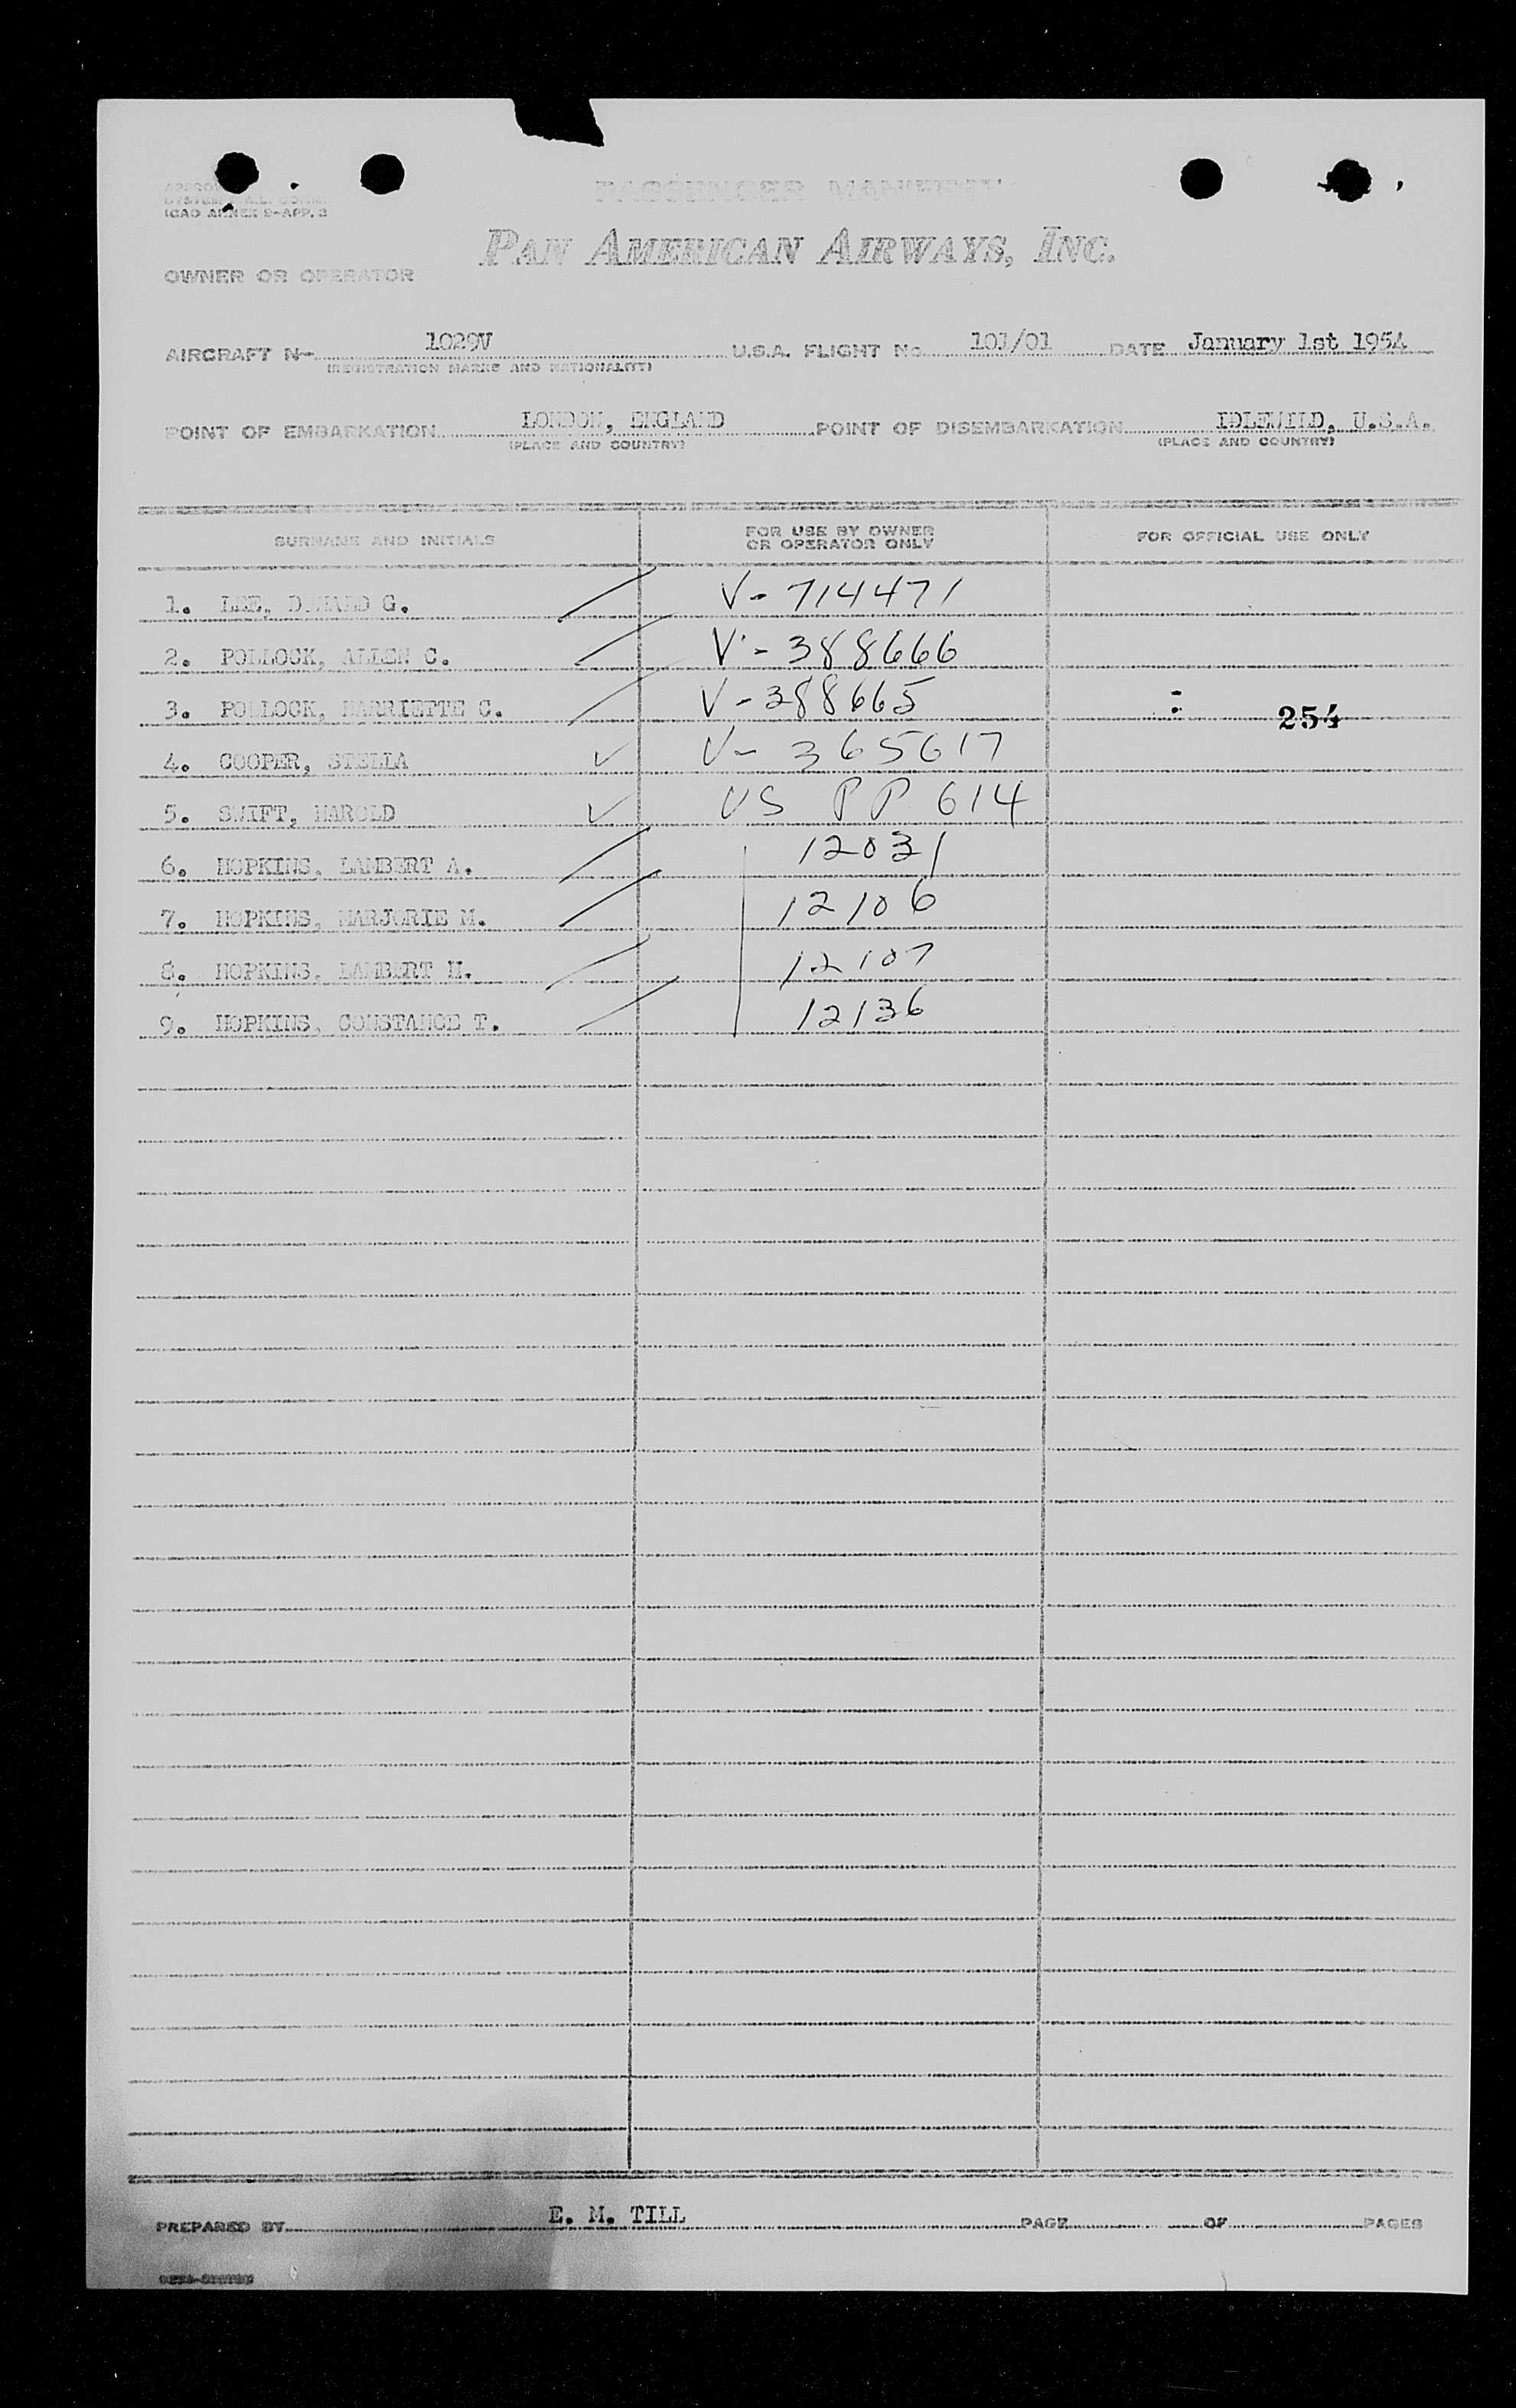 PASSENGER MANIFEST
ICAO ANNEX 9-APP. 3
PAN AMERICAN AIRWAYS, INC.
OWNER OR OPERATOR
AIRCRAFT N- 1029V U.S.A. FLIGHT No 101/01 DATE January 1st 1954
(REGISTRATION MARKS AND NATIONALITY)
POINT OF EMBARKATION LONDON, ENGLAND POINT OF DISEMBARKATION IDLEWILD, U.S.A.
(PLACE AND COUNTRY) (PLACE AND COUNTRY)
SURNAME AND INITIALS FOR USE BY OWNER OR OPERATOR ONLY FOR OFFICIAL USE ONLY
1. LEE, DONALD G. V-714471
2. POLLOCK, ALLEN C. V-388666
3. POLLOCK, HARRIETTE C. V-388665 254
4. COOPER, STELLA ✓ V-365617
5. SWIFT, HAROLD ✓ US PP 614
6. HOPKINS, LAMBERT A. 12031
7. HOPKINS, MARJORIE M. 12106
8. HOPKINS, LAMBERT H. 12107
9. HOPKINS, CONSTANCE T. 12136
PREPARED BY E. M. TILL PAGE OF PAGES